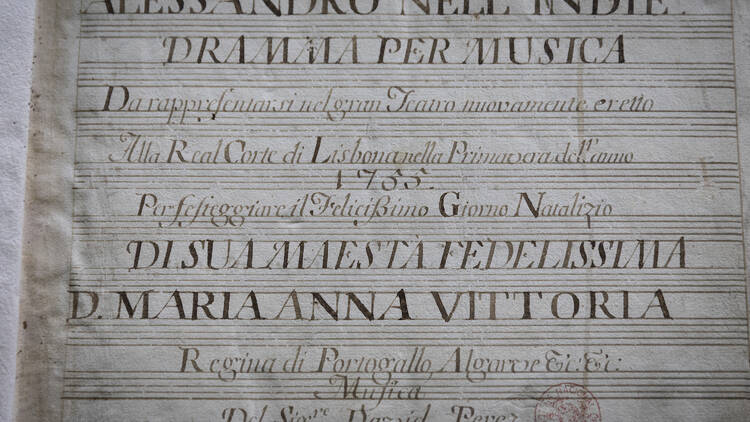 ALESSANDRO NELL' INDIE.
DRAMMA PER MUSICA
Da rappresentarsi nel gran Teatro nuovamente eretto
Alla Real Corte di Lisbona nella Primavera dell' anno
1755.
Per festeggiare il Felicissimo Giorno Natalizio
DI SUA MAESTÀ FEDELISSIMA
D. MARIA ANNA VITTORIA
Regina di Portogallo, Algarve &c: &c:
Musica
Del Sigre David Perez